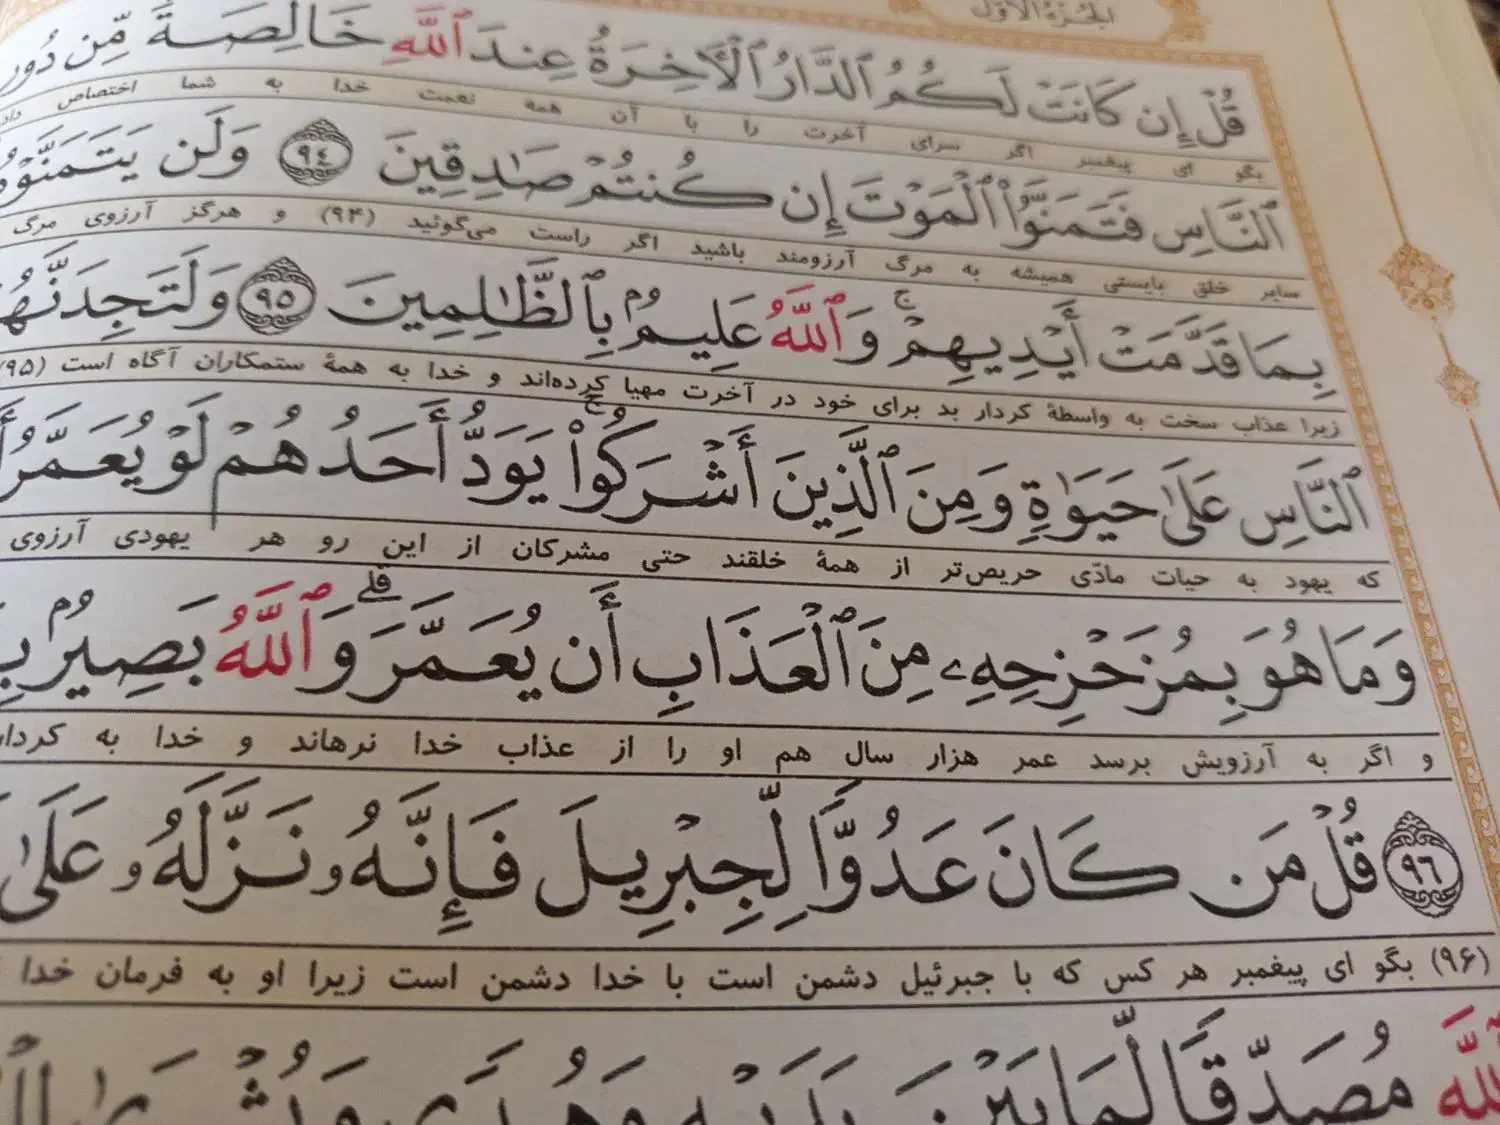 الجزء الاول
قُلْ إِن كَانَتْ لَكُمُ ٱلدَّارُ ٱلْأَخِرَةُ عِندَ ٱللَّهِ خَالِصَةً مِّن دُونِ
بگو ای پیغمبر اگر سرای آخرت را با آن همه نعمت خدا به شما اختصاص داده
ٱلنَّاسِ فَتَمَنَّوُا۟ ٱلْمَوْتَ إِن كُنتُمْ صَٰدِقِينَ ۹۴ وَلَن يَتَمَنَّوْهُ
سایر خلق بایستی همیشه به مرگ آرزومند باشید اگر راست می‌گوئید (۹۴) و هرگز آرزوی مرگ
بِمَا قَدَّمَتْ أَيْدِيهِمْ ۚ وَٱللَّهُ عَلِيمٌۢ بِٱلظَّٰلِمِينَ ۹۵ وَلَتَجِدَنَّهُمْ
زیرا عذاب سخت به واسطهٔ کردار بد برای خود در آخرت مهیا کرده‌اند و خدا به همهٔ ستمکاران آگاه است (۹۵)
ٱلنَّاسِ عَلَىٰ حَيَوٰةٍ وَمِنَ ٱلَّذِينَ أَشْرَكُوا۟ ۚ يَوَدُّ أَحَدُهُمْ لَوْ يُعَمَّرُ
که یهود به حیات مادّی حریص‌تر از همهٔ خلقند حتی مشرکان از این رو هر یهودی آرزوی
وَمَا هُوَ بِمُزَحْزِحِهِۦ مِنَ ٱلْعَذَابِ أَن يُعَمَّرَ ۗ وَٱللَّهُ بَصِيرٌۢ
و اگر به آرزویش برسد عمر هزار سال هم او را از عذاب خدا نرهاند و خدا به کردار
۹۶ قُلْ مَن كَانَ عَدُوًّا لِّجِبْرِيلَ فَإِنَّهُۥ نَزَّلَهُۥ عَلَىٰ
(۹۶) بگو ای پیغمبر هر کس که با جبرئیل دشمن است با خدا دشمن است زیرا او به فرمان خدا
ٱللَّهِ مُصَدِّقًا لِّمَا بَيْنَ يَدَيْهِ وَهُدًى وَبُشْرَىٰ